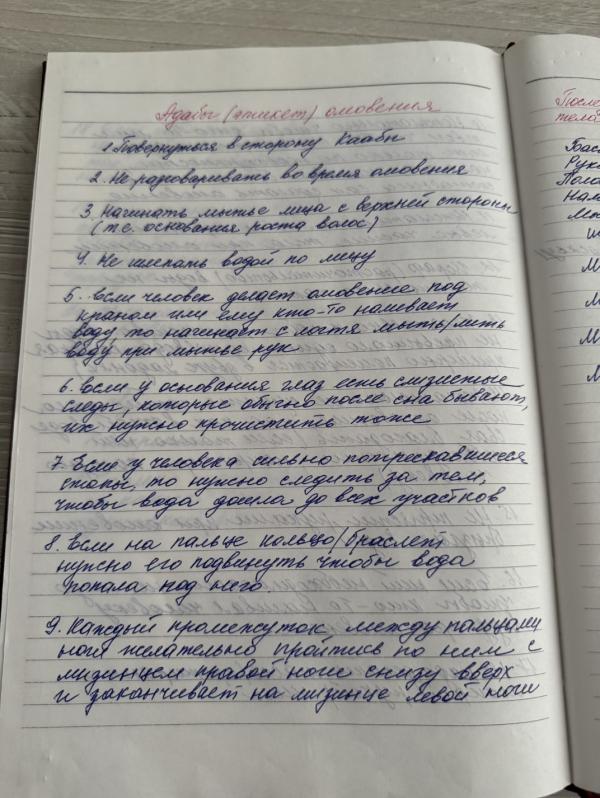 Адабы (этикет) омовения
1. Повернуться в сторону Каабы
2. Не разговаривать во время омовения
3. Начинать мытье лица с верхней стороны
(т.е. основания роста волос)
4. Не шлепать водой по лицу
5. Если человек делает омовение под
краном или ему кто-то наливает
воду, то начинает с локтя мыть/лить
воду при мытье рук
6. Если у основания глаз есть слизистые
следы, которые обычно после сна бывают,
их нужно прочистить тоже
7. Если у человека сильно потрескавшиеся
стопы, то нужно следить за тем,
чтобы вода дошла до всех участков
8. Если на пальце кольцо/браслет
нужно его подвинуть чтобы вода
попала под него.
9. Каждый промежуток между пальцами
ноги желательно пройтись по ним с
мизинцем правой ноги снизу вверх
и заканчивает на мизинце левой ноги
После
тела
Рук